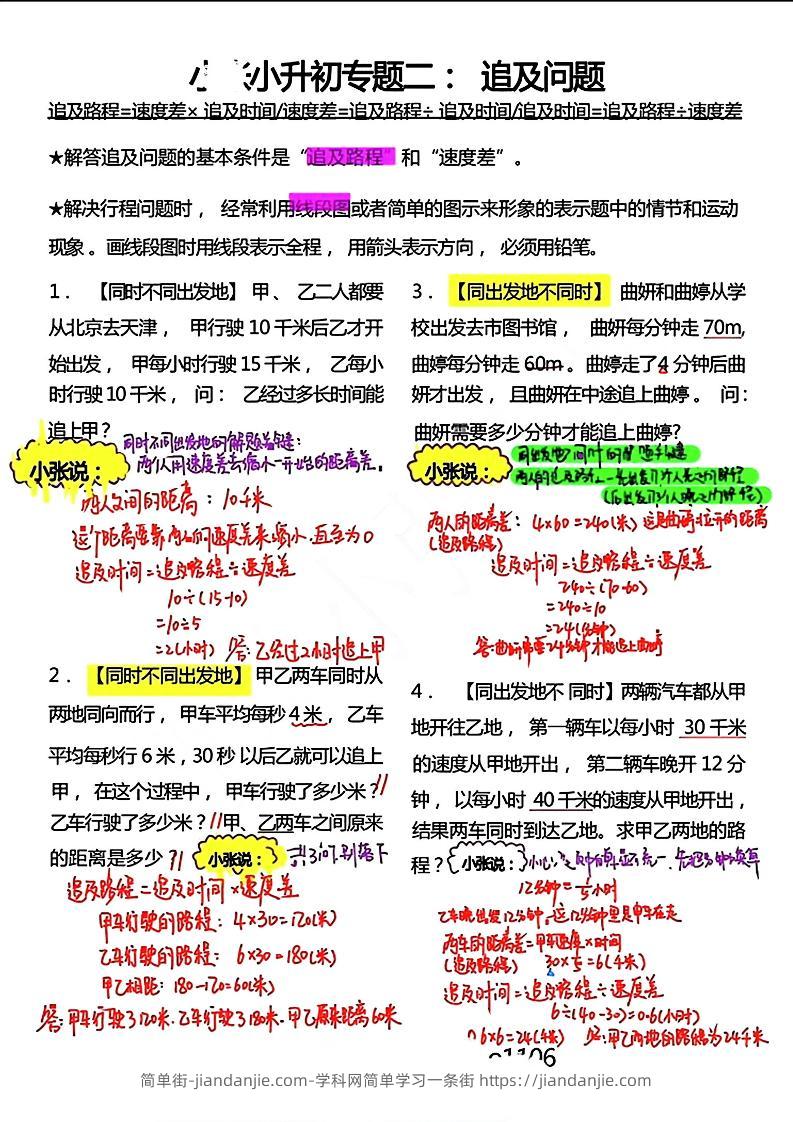 小张小升初专题二： 追及问题
追及路程=速度差× 追及时间/速度差=追及路程÷ 追及时间/追及时间=追及路程÷速度差
★解答追及问题的基本条件是“追及路程”和“速度差”。
★解决行程问题时， 经常利用线段图或者简单的图示来形象的表示题中的情节和运动
现象。画线段图时用线段表示全程， 用箭头表示方向， 必须用铅笔。
1． 【同时不同出发地】 甲、 乙二人都要
从北京去天津， 甲行驶 10 千米后乙才开
始出发， 甲每小时行驶 15 千米， 乙每小
时行驶 10 千米， 问： 乙经过多长时间能
追上甲？
同时不同出发地的解题关键：
两人用速度差去缩小一开始的距离差。
小张说：
两人之间的距离：10千米
这个距离要靠两人间速度差来缩小.直至为0
追及时间=追及路程÷速度差
10÷(15-10)
=10÷5
=2(小时) 答：乙经过2小时追上甲
2． 【同时不同出发地】 甲乙两车同时从
两地同向而行， 甲车平均每秒 4 米， 乙车
平均每秒行 6 米，30 秒 以后乙就可以追上
甲， 在这个过程中， 甲车行驶了多少米？
乙车行驶了多少米？甲、乙两车之间原来
的距离是多少？
小张说：
共3问.别落下
追及路程=追及时间×速度差
甲车行驶的路程：4×30=120(米)
乙车行驶的路程：6×30=180(米)
甲乙相距：180-120=60(米)
答：甲车行驶了120米.乙车行驶了180米.甲乙原来距离60米
3． 【同出发地不同时】 曲妍和曲婷从学
校出发去市图书馆， 曲妍每分钟走 70m,
曲婷每分钟走 60m 。曲婷走了4 分钟后曲
妍才出发， 且曲妍在中途追上曲婷 。 问：
曲妍需要多少分钟才能追上曲婷?
小张说：
同出发地不同时的解题关键
两人的追及路程=先出发的人先走的路程
两人的距离差：4×60=240(米)
(追及路程)
追及时间=追及路程÷速度差
240÷(70-60)
=240÷10
=24(分钟)
答:曲妍需要24分钟才能追上曲婷
4． 【同出发地不 同时】两辆汽车都从甲
地开往乙地， 第一辆车以每小时 30 千米
的速度从甲地开出， 第二辆车晚开 12 分
钟， 以每小时 40 千米的速度从甲地开出，
结果两车同时到达乙地。求甲乙两地的路
程？
小张说：
12分钟=1/5小时
乙车晚出发12分钟,这12分钟里是甲车在走
两车的距离差=甲车速度×时间
(追及路程) 30×1/5=6(千米)
追及时间=追及路程÷速度差
6÷(40-30)=0.6(小时)
答:甲乙两地的路程为24千米
简单街-jiandanjie.com-学科网简单学习一条街 https://jiandanjie.com